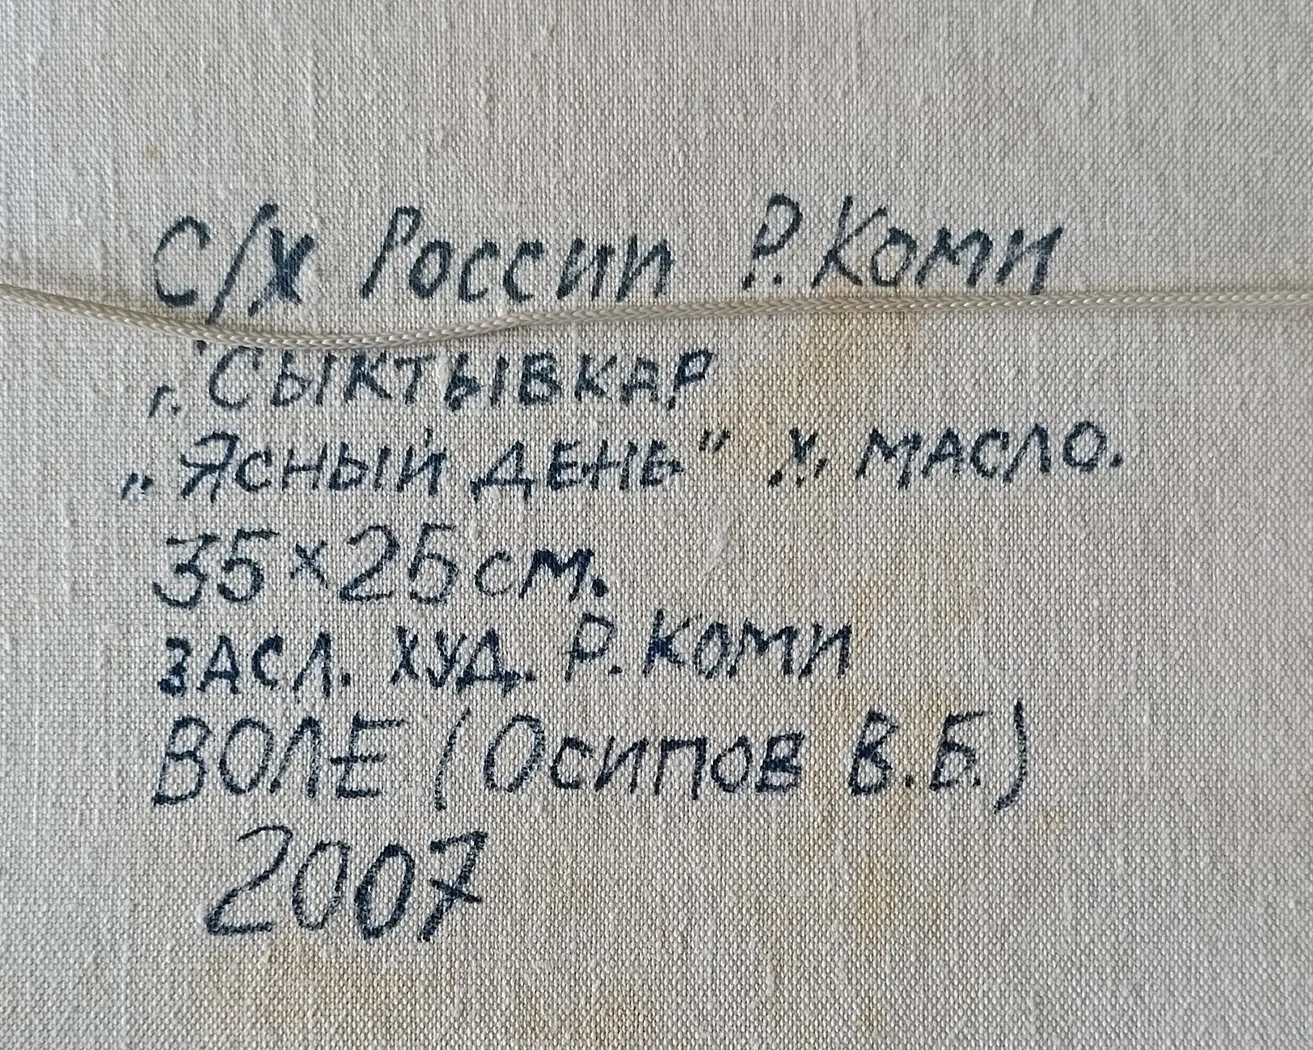 С/Х России Р.Коми
г. Сыктывкар
„Ясный день" х. масло.
35×25см.
засл. худ. Р.Коми
ВОЛЕ (Осипов В.Б.)
2007